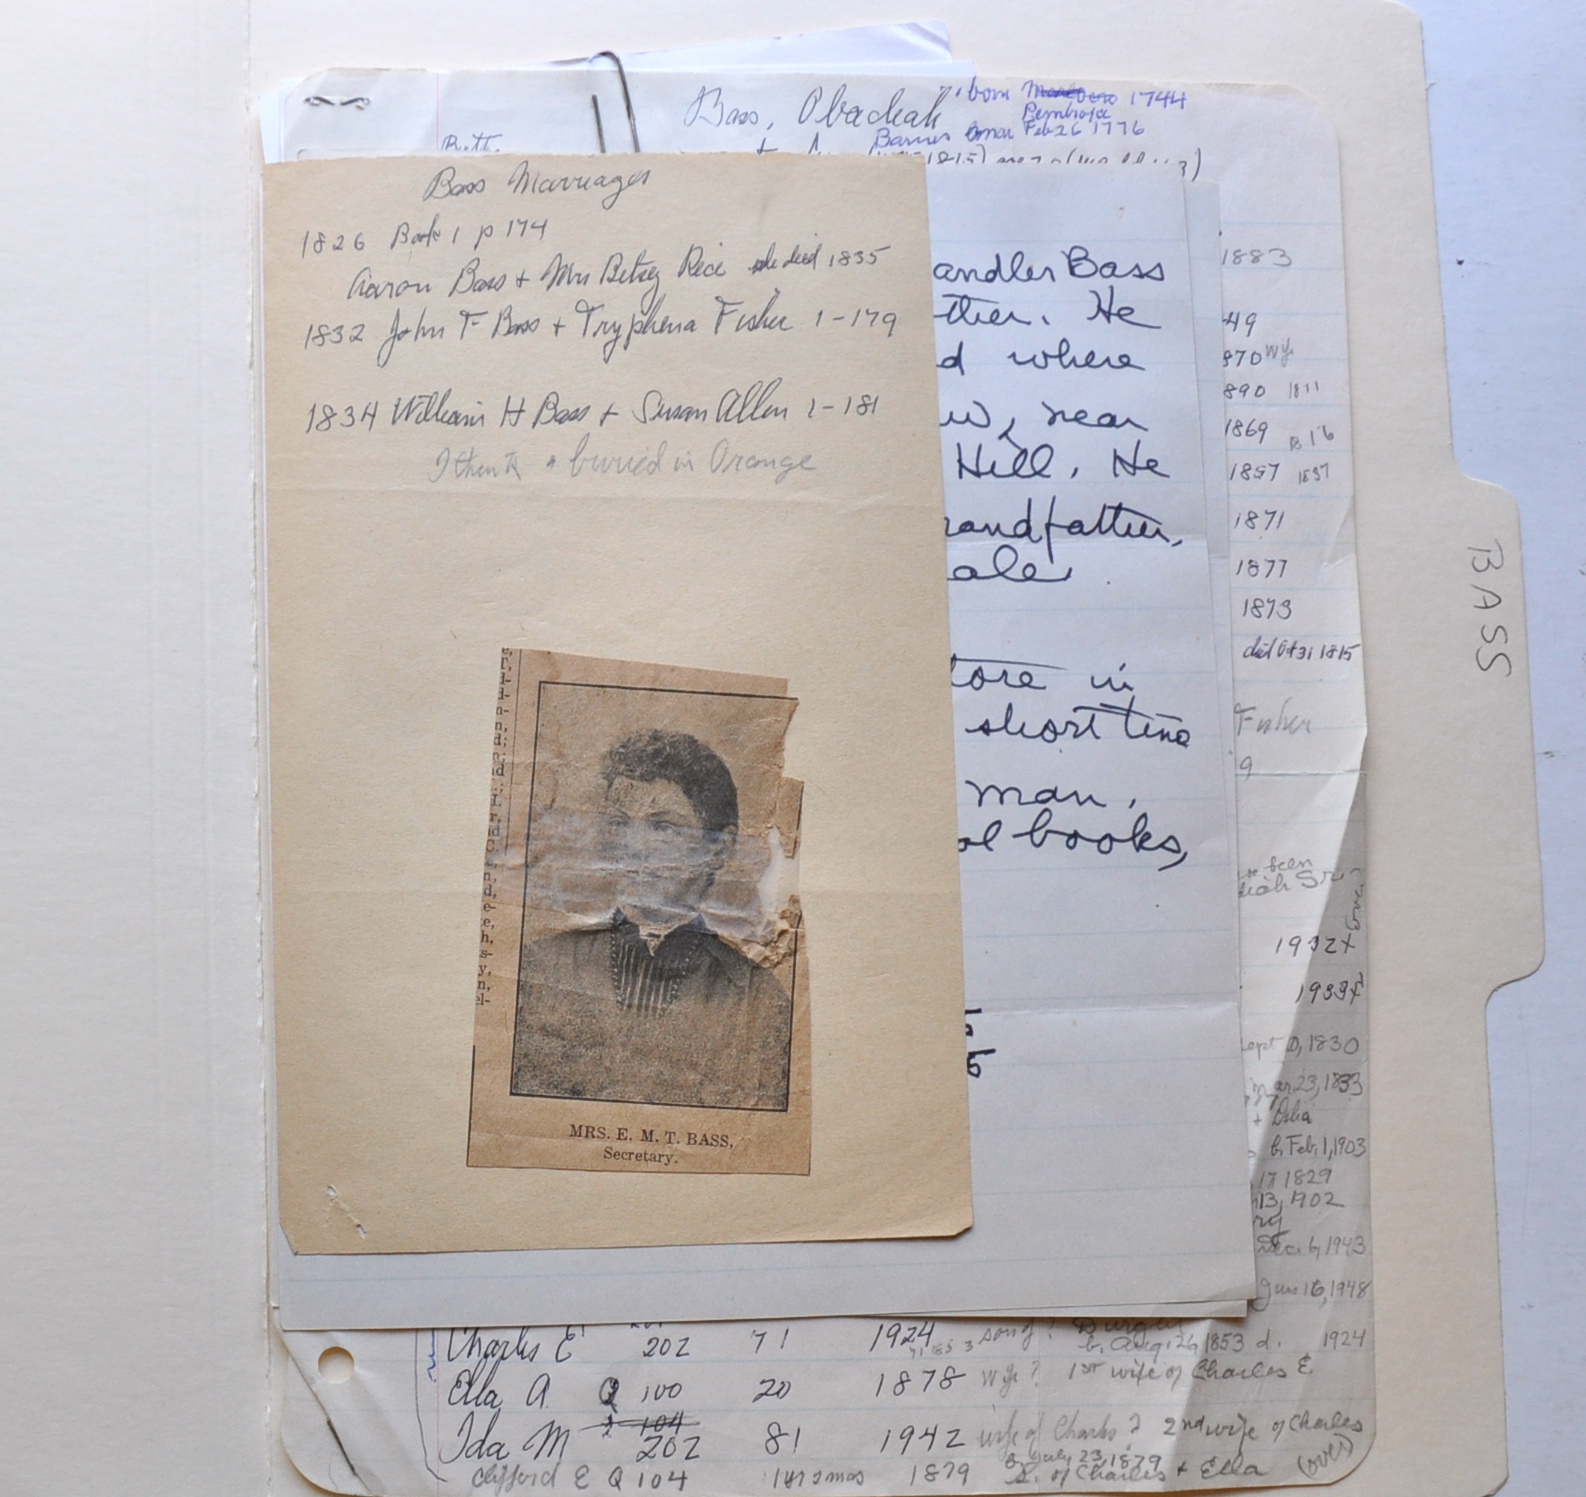 Bass, Obadiah
born Marlboro 1744
Pembroke
mar Feb 26 1776
Birth
Bass Marriages
1826 Book 1 p 174
Aaron Bass + Mrs Betsey Rice she died 1835
1832 John F Bass + Tryphena Fisher 1-179
1834 William H Bass + Susan Allen 1-181
I think buried in Orange
andler Bass
ther. He
d where
w, near
Hill. He
randfather,
ale
tore in
short time
man,
ol books,
1883
49
870 wf
890 1811
1869
1857 1837
1871
1877
1873
died Oct 31 1815
Fisher
9
been
diah Sr.
1932+
1933+
Sept 10, 1830
Mar 23, 1833
+ Delia
b. Feb. 1, 1903
17 1829
13, 1902
ry
Dec. 6, 1943
June 16, 1948
BASS
MRS. E. M. T. BASS,
Secretary.
Charles E 202 71 1924 son of? b. Aug. 26 1853 d. 1924
Ella A. Q 100 20 1878 wife? 1st wife of Charles E.
Ida M 2 104 202 81 1942 wife of Charles? 2nd wife of Charles
b July 23, 1879
Clifford E Q 104 1879 S. of Charles + Ella (over)